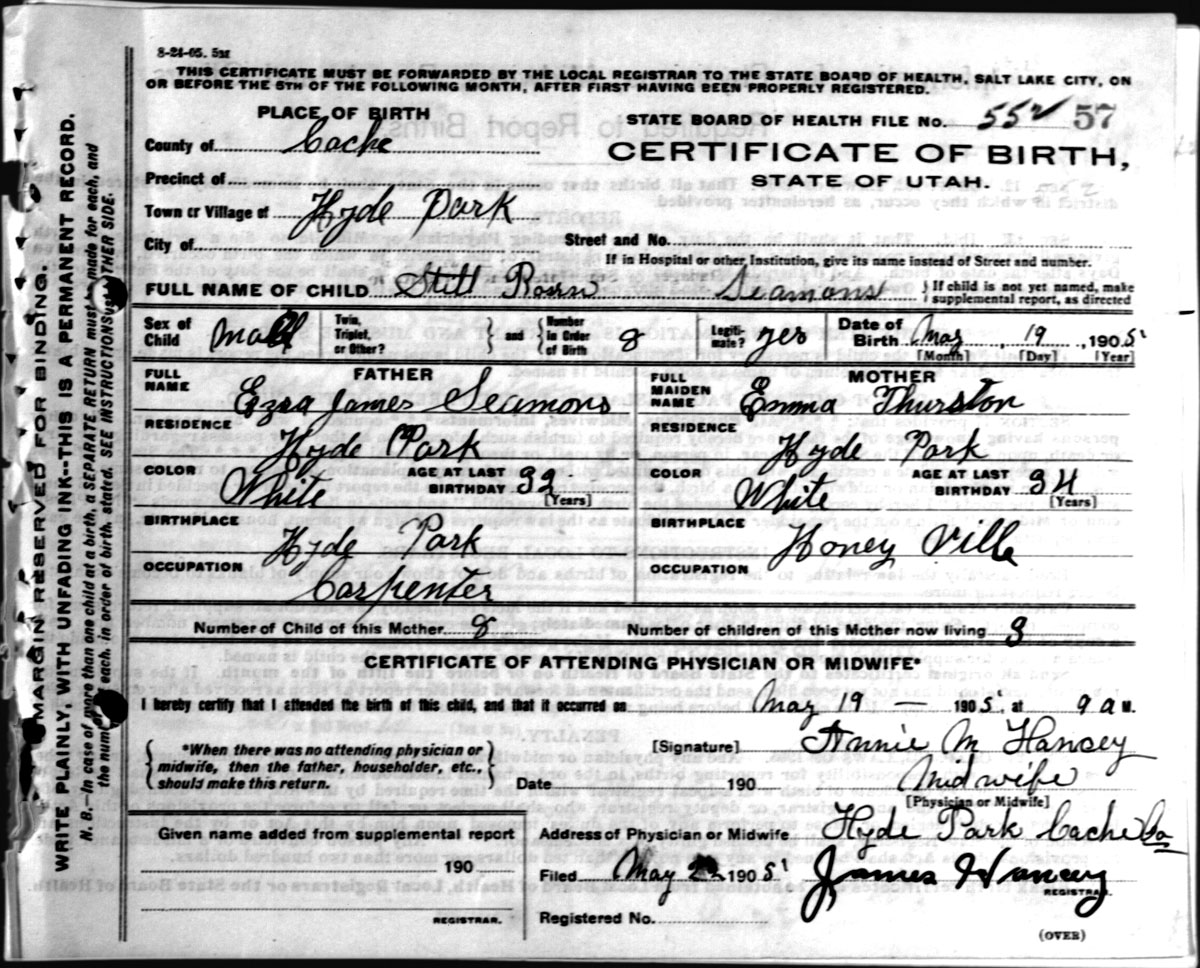 8-24-05. 5M
THIS CERTIFICATE MUST BE FORWARDED BY THE LOCAL REGISTRAR TO THE STATE BOARD OF HEALTH, SALT LAKE CITY, ON
OR BEFORE THE 5TH OF THE FOLLOWING MONTH, AFTER FIRST HAVING BEEN PROPERLY REGISTERED.
PLACE OF BIRTH
STATE BOARD OF HEALTH FILE No. 552 57
County of Cache
CERTIFICATE OF BIRTH,
STATE OF UTAH.
Precinct of
Town or Village of Hyde Park
City of Street and No.
If in Hospital or other Institution, give its name instead of Street and number.
FULL NAME OF CHILD Still Born Seamons } If child is not yet named, make supplemental report, as directed
Sex of Child Male Twin, Triplet, or Other? } and { Number in Order of Birth 8 Legiti-mate? yes Date of Birth May, 19, 1905
[Month] [Day] [Year]
FATHER
FULL NAME Ezra James Seamons
RESIDENCE
Hyde Park
COLOR White AGE AT LAST BIRTHDAY 32 [Years]
BIRTHPLACE
Hyde Park
OCCUPATION
Carpenter
MOTHER
FULL MAIDEN NAME Emma Thurston
RESIDENCE
Hyde Park
COLOR White AGE AT LAST BIRTHDAY 34 [Years]
BIRTHPLACE
Honey Ville
OCCUPATION
Number of Child of this Mother 8 Number of children of this Mother now living 3
CERTIFICATE OF ATTENDING PHYSICIAN OR MIDWIFE*
I hereby certify that I attended the birth of this child, and that it occurred on May 19 — 1905, at 9 a M.
{ *When there was no attending physician or midwife, then the father, householder, etc., should make this return. }
[Signature] Annie M Hancey
Date 190 Midwife
[Physician or Midwife]
Given name added from supplemental report
190
REGISTRAR.
Address of Physician or Midwife Hyde Park Cache Co
Filed May 22 1905 James Hancey
REGISTRAR.
Registered No.
(OVER)
MARGIN RESERVED FOR BINDING.
WRITE PLAINLY, WITH UNFADING INK--THIS IS A PERMANENT RECORD.
N. B.—In case of more than one child at a birth, a SEPARATE RETURN must be made for each, and
the number of each, in order of birth, stated. SEE INSTRUCTIONS ON OTHER SIDE.